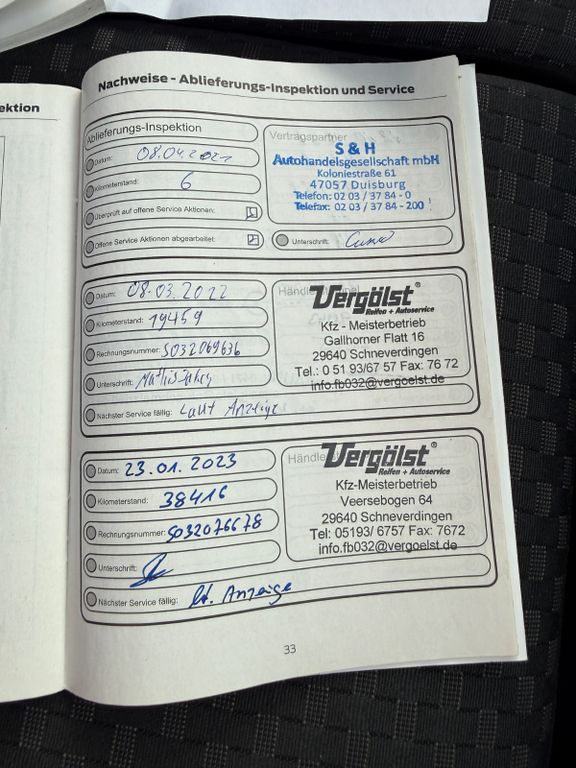 ektion
Nachweise - Ablieferungs-Inspektion und Service
Ablieferungs-Inspektion
Datum: 08.04.2021
Kilometerstand: 6
Überprüft auf offene Service Aktionen:
Offene Service Aktionen abgearbeitet:
Vertragspartner
S & H
Autohandelsgesellschaft mbH
Koloniestraße 61
47057 Duisburg
Telefon: 02 03 / 37 84 - 0
Telefax: 02 03 / 37 84 - 200
Unterschrift:
Datum: 08.03.2022
Kilometerstand: 19459
Rechnungsnummer: 5032069636
Unterschrift:
Nächster Service fällig: Laut Anzeige
Vergölst®
Reifen + Autoservice
Kfz - Meisterbetrieb
Gallhorner Flatt 16
29640 Schneverdingen
Tel.: 0 51 93/67 57 Fax: 76 72
info.fb032@vergoelst.de
Datum: 23.01.2023
Kilometerstand: 38416
Rechnungsnummer: 5032076678
Unterschrift:
Nächster Service fällig: lt. Anzeige
Vergölst®
Reifen + Autoservice
Kfz-Meisterbetrieb
Veersebogen 64
29640 Schneverdingen
Tel: 05193/ 6757 Fax: 7672
info.fb032@vergoelst.de
33